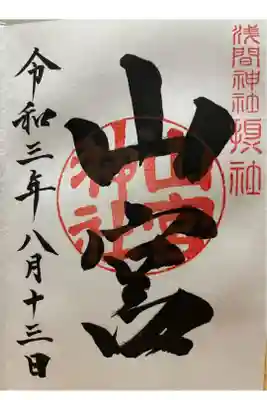 浅間神社摂社
山宮
山宮神社
令和三年八月十三日